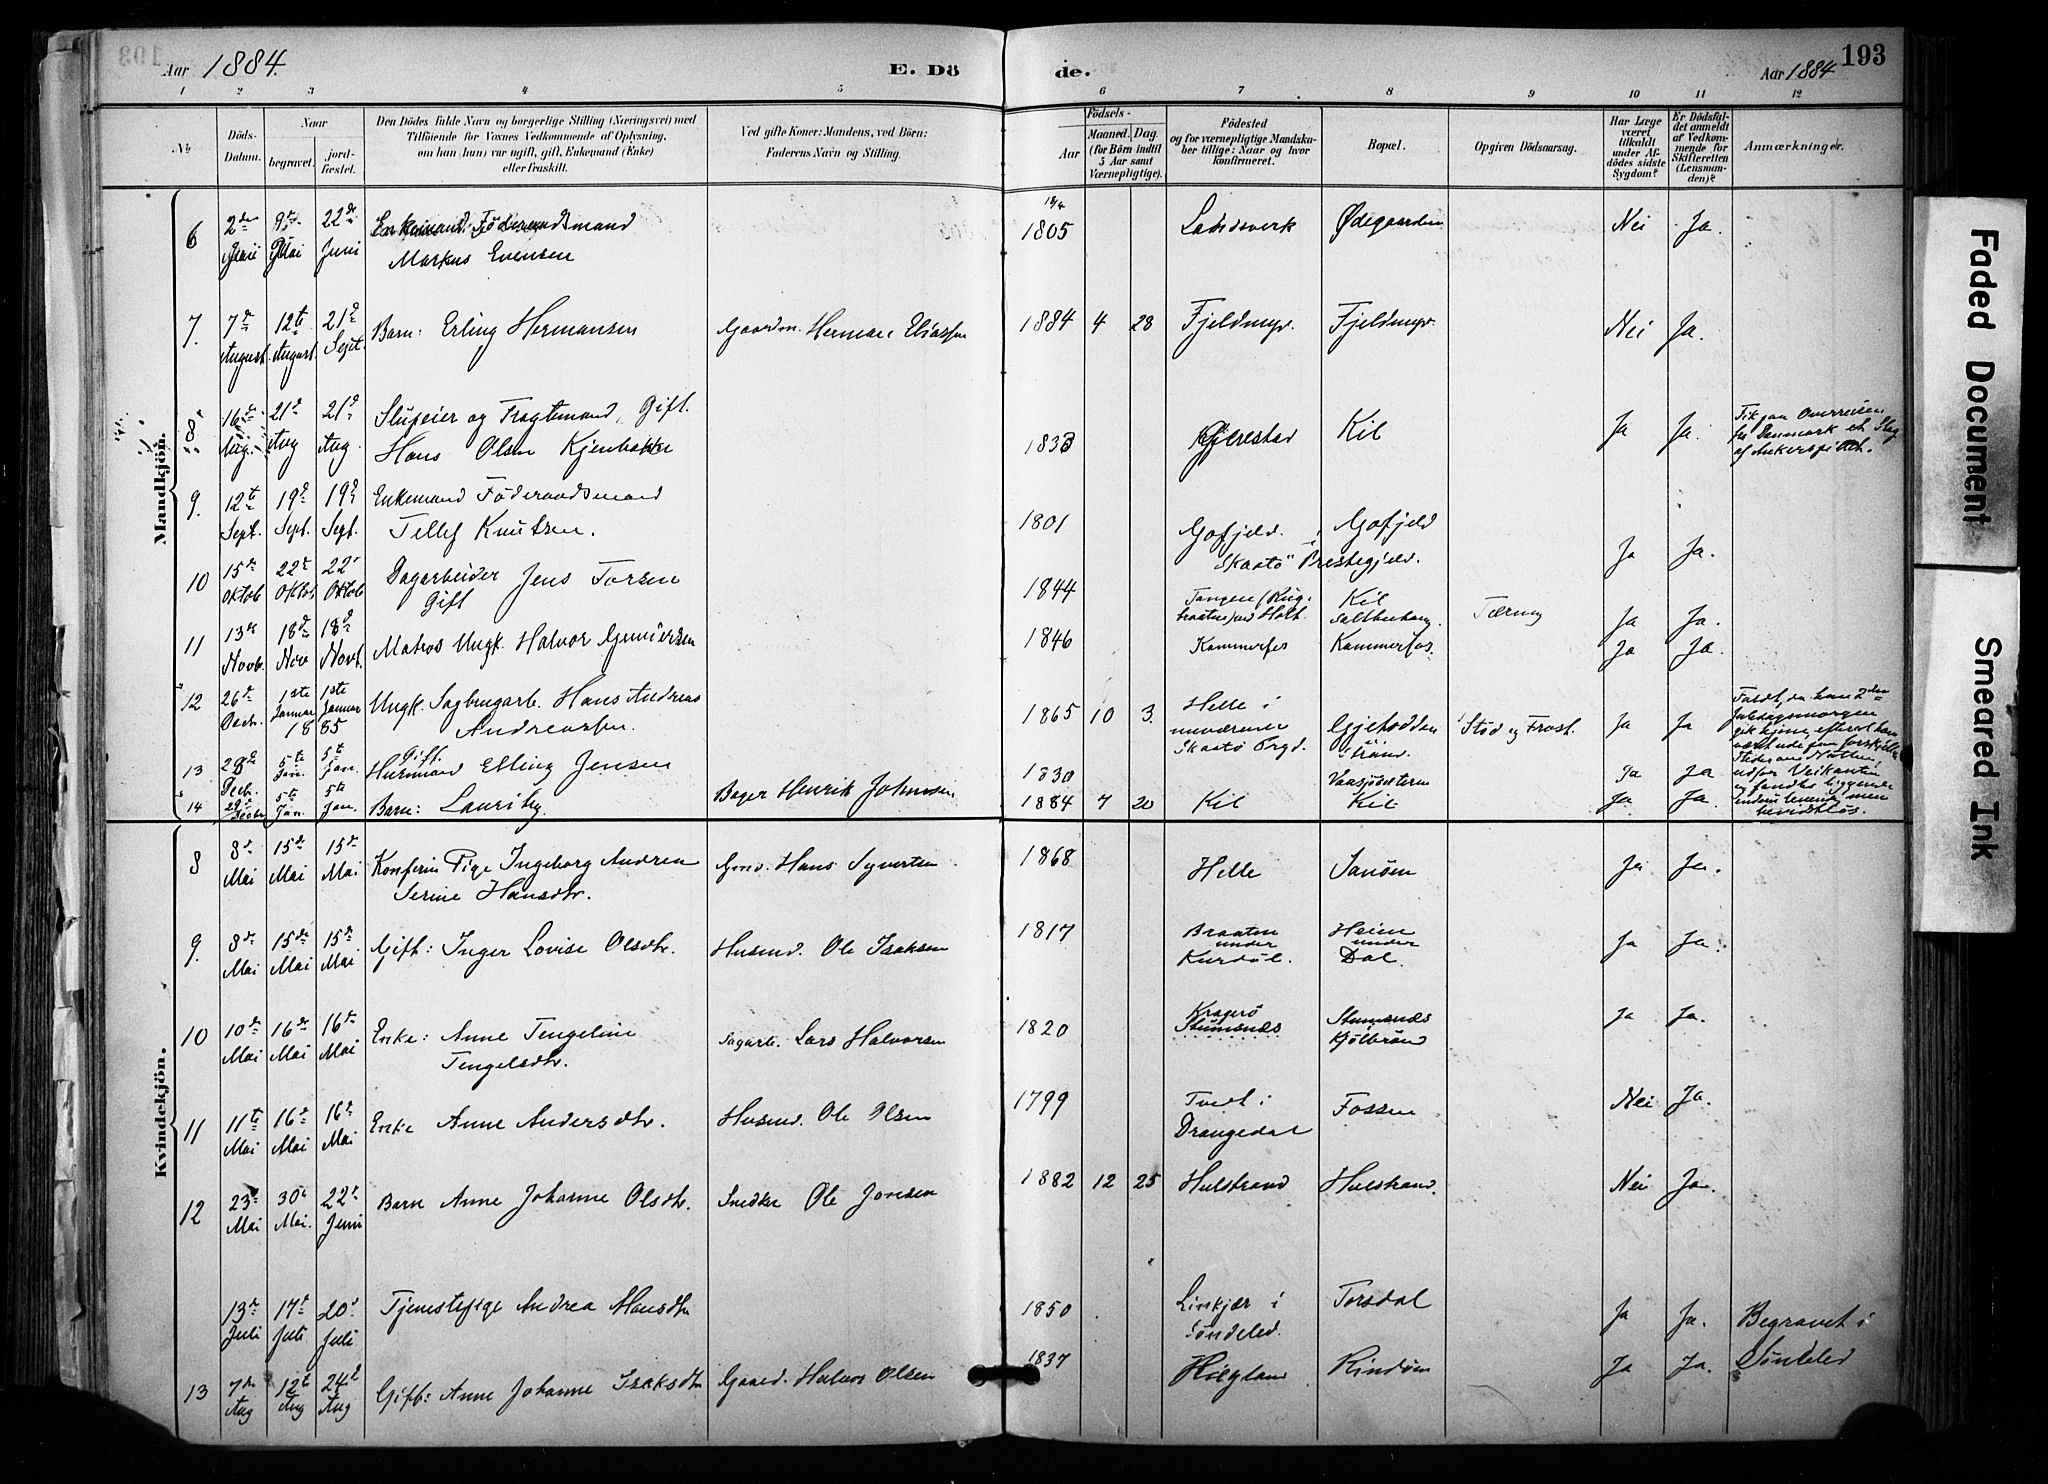 Aar 1884. E. Dö de. Aar 1884 193
1 2 3 4 5 6 7 8 9 10 11 12
No
Döds-Datum.
Naar begravet. jordfæstet.
Den Dödes fulde Navn og borgerlige Stilling (Næringsvei) med
Tilföiende for Voxnes Vedkommende af Oplysning,
om han (hun) var ugift, gift, Enkemand (Enke)
eller fraskilt.
Ved gifte Koner: Mandens, ved Börn:
Faderens Navn og Stilling.
Födsels-
Aar Maaned. Dag.
(for Börn indtil
5 Aar samt
Værnepligtige).
Födested
og for værnepligtige Mandska-
ber tillige: Naar og hvor
konfirmeret.
Bopæl.
Opgiven Dödsaarsag.
Har Læge
været
tilkaldt
under Af-
dödes sidste
Sygdom?
Er Dödsfal-
det anmeldt
af Vedkom-
mende for
Skifteretten
(Lensman-
den)?
Anmærkninger.
Mandkjön.
6 2den 9de Mai 22de Juni Enkemand Föderaadsmand
Markus Evensen 1805 Landsverk Ødegaarden Nei Ja.
7. 7de August 12te August 21de Sept. Barn: Erling Hermansen Gaardm. Herman Eliassen 1884 4 28 Fjeldmyr. Fjeldmyr. Nei Ja.
8. 16de Aug. 21de Aug 21de Aug. Slupeier og Fragtemand, Gift.
Hans Olsen Kjenbakke 1833 Gjerestad Kil Ja Ja. Fik paa Overreisen
fra Danmark et Slag
af Ankerspillet.
9. 12te Sept. 19de Sept. 19de Sept. Enkemand Föderaadsmand
Tellef Knutsen. 1801 Gofjeld. i Gofjeld
Skaatö Prestegjeld. Ja Ja.
10 15de Oktob 22de Oktob 22de Oktob Dagarbeider Jens Torsen
Gift 1844 Tangen Kil Ja Ja.
11 13de Novb. 18de Nov 18de Novb. Matros Ungk. Halvor Gundersen 1846 Kammerfos Kammerfos. Ja Ja.
12 26de Decb. 1ste Januar 1ste Januar 1885 Ungk. Sagbrugarb. Hans Andreas
Andreassen. 1865 10 3. Helle i
nuværende
Skaatö Prgd. Gjetodden
i
Strand. Stöd og Frost. Ja Ja Faldt, da han 2den
Juledagsmorgen
gik hjem, efterat han
været ude paa forskjellige
Steder om Natten,
udfor Veikanten
og fandtes liggende
endnu levende, men
bevidstlös.
13 28de Decb. 5te Jan. 5te Jan. Gift.
Husmand Elling Jensen 1830 Ja Ja
14 29de Decbr 5te Jan. 5te Jan. Barn: Bager Henrik Johnsen 1884 7 20 Kil Kil Ja. Ja.
Kvindekjön.
8 8de Mai 15de Mai 15de Mai Konfirm Pige Ingeborg Andrea
Serine Hansdtr. Gmd. Hans Syvertsen 1868 Helle Ja Ja.
9. 8de Mai 15de Mai 15de Mai Gift: Inger Lovise Olsdtr. Husmd. Ole Isaksen 1817 Braaten
under
Kurdöl. Heien
under
Dal. Ja Ja.
10 10de Mai 16de Mai 16de Mai Enke: Anne Tengeline
Tengelsdtr. Sagarb. Lars Halvorsen 1820 Kragerö
Stumsnæs Stumsnæs
Kjölbrönd Ja Ja.
11 11te Mai 16de Mai 16de Mai Enke Anne Andersdtr. Husmd. Ole Olsen 1799 Tvedt i
Drangedal Fossen Nei Ja.
12 23de Mai 30te Mai. 22de Juni Barn Anne Johanne Olsdtr. Snedker Ole Jensen 1882 12 25 Hulstrand Hulstrand. Nei Ja.
13de Juli 17de Juli 20de Juli Tjenestepige Andrea Hansdtr 1850 Linkjær i
Söndeled. Torsdal Ja Ja. Begravet i
Söndeled
13 7de Aug 12te Aug 24de Aug Gift: Anne Johanne Isaksdtr Gaard. Halvor Olsen 1837 Rindöm Ja Ja.
Faded Document
Smeared Ink